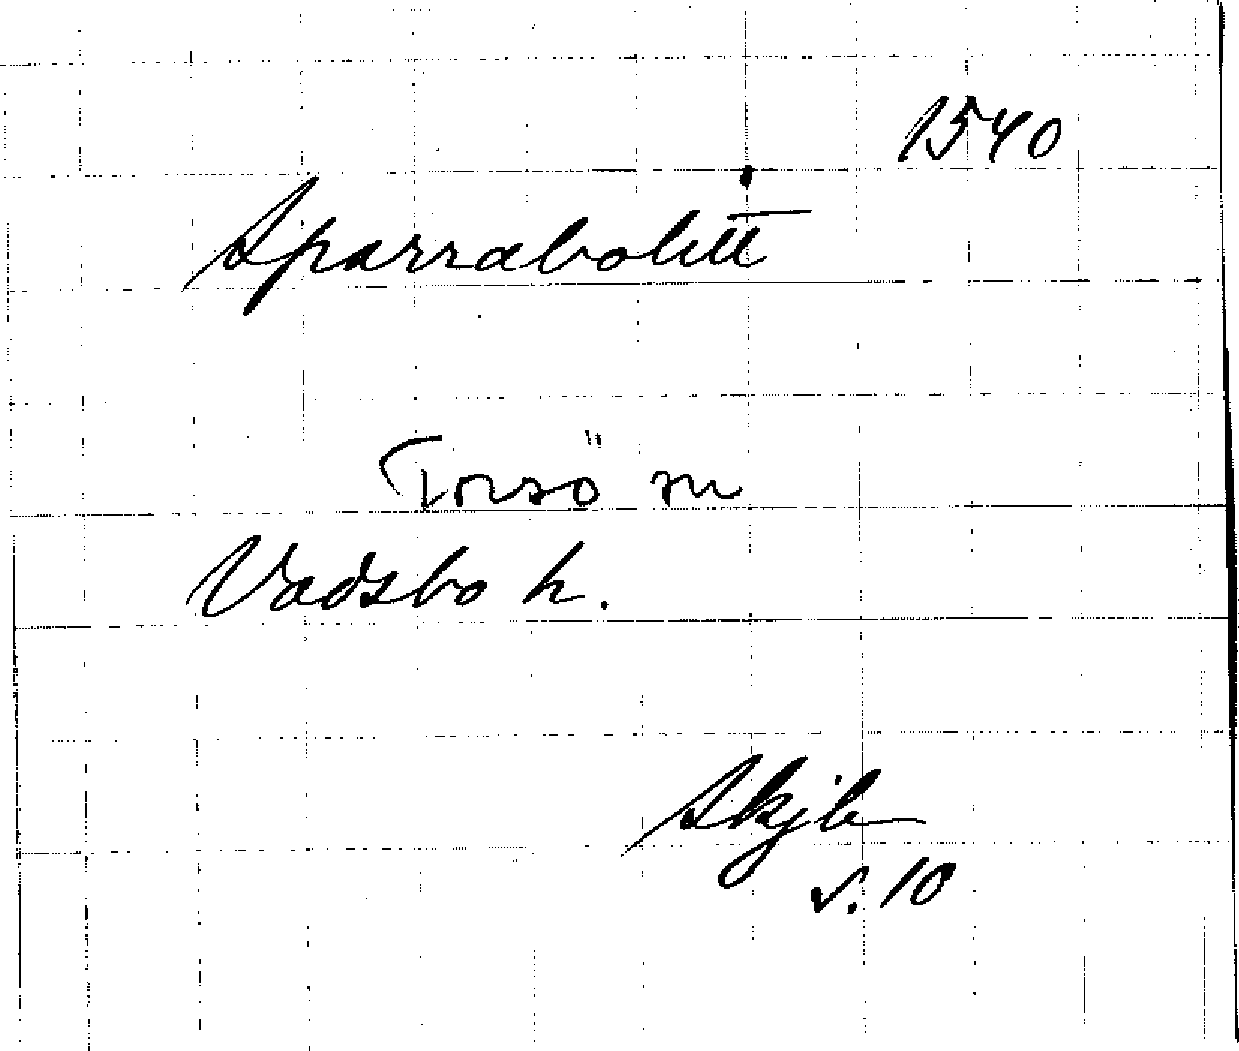 1540
Sparrabolett
Torsö sn
Vadsbo h.
Skjb
s. 10